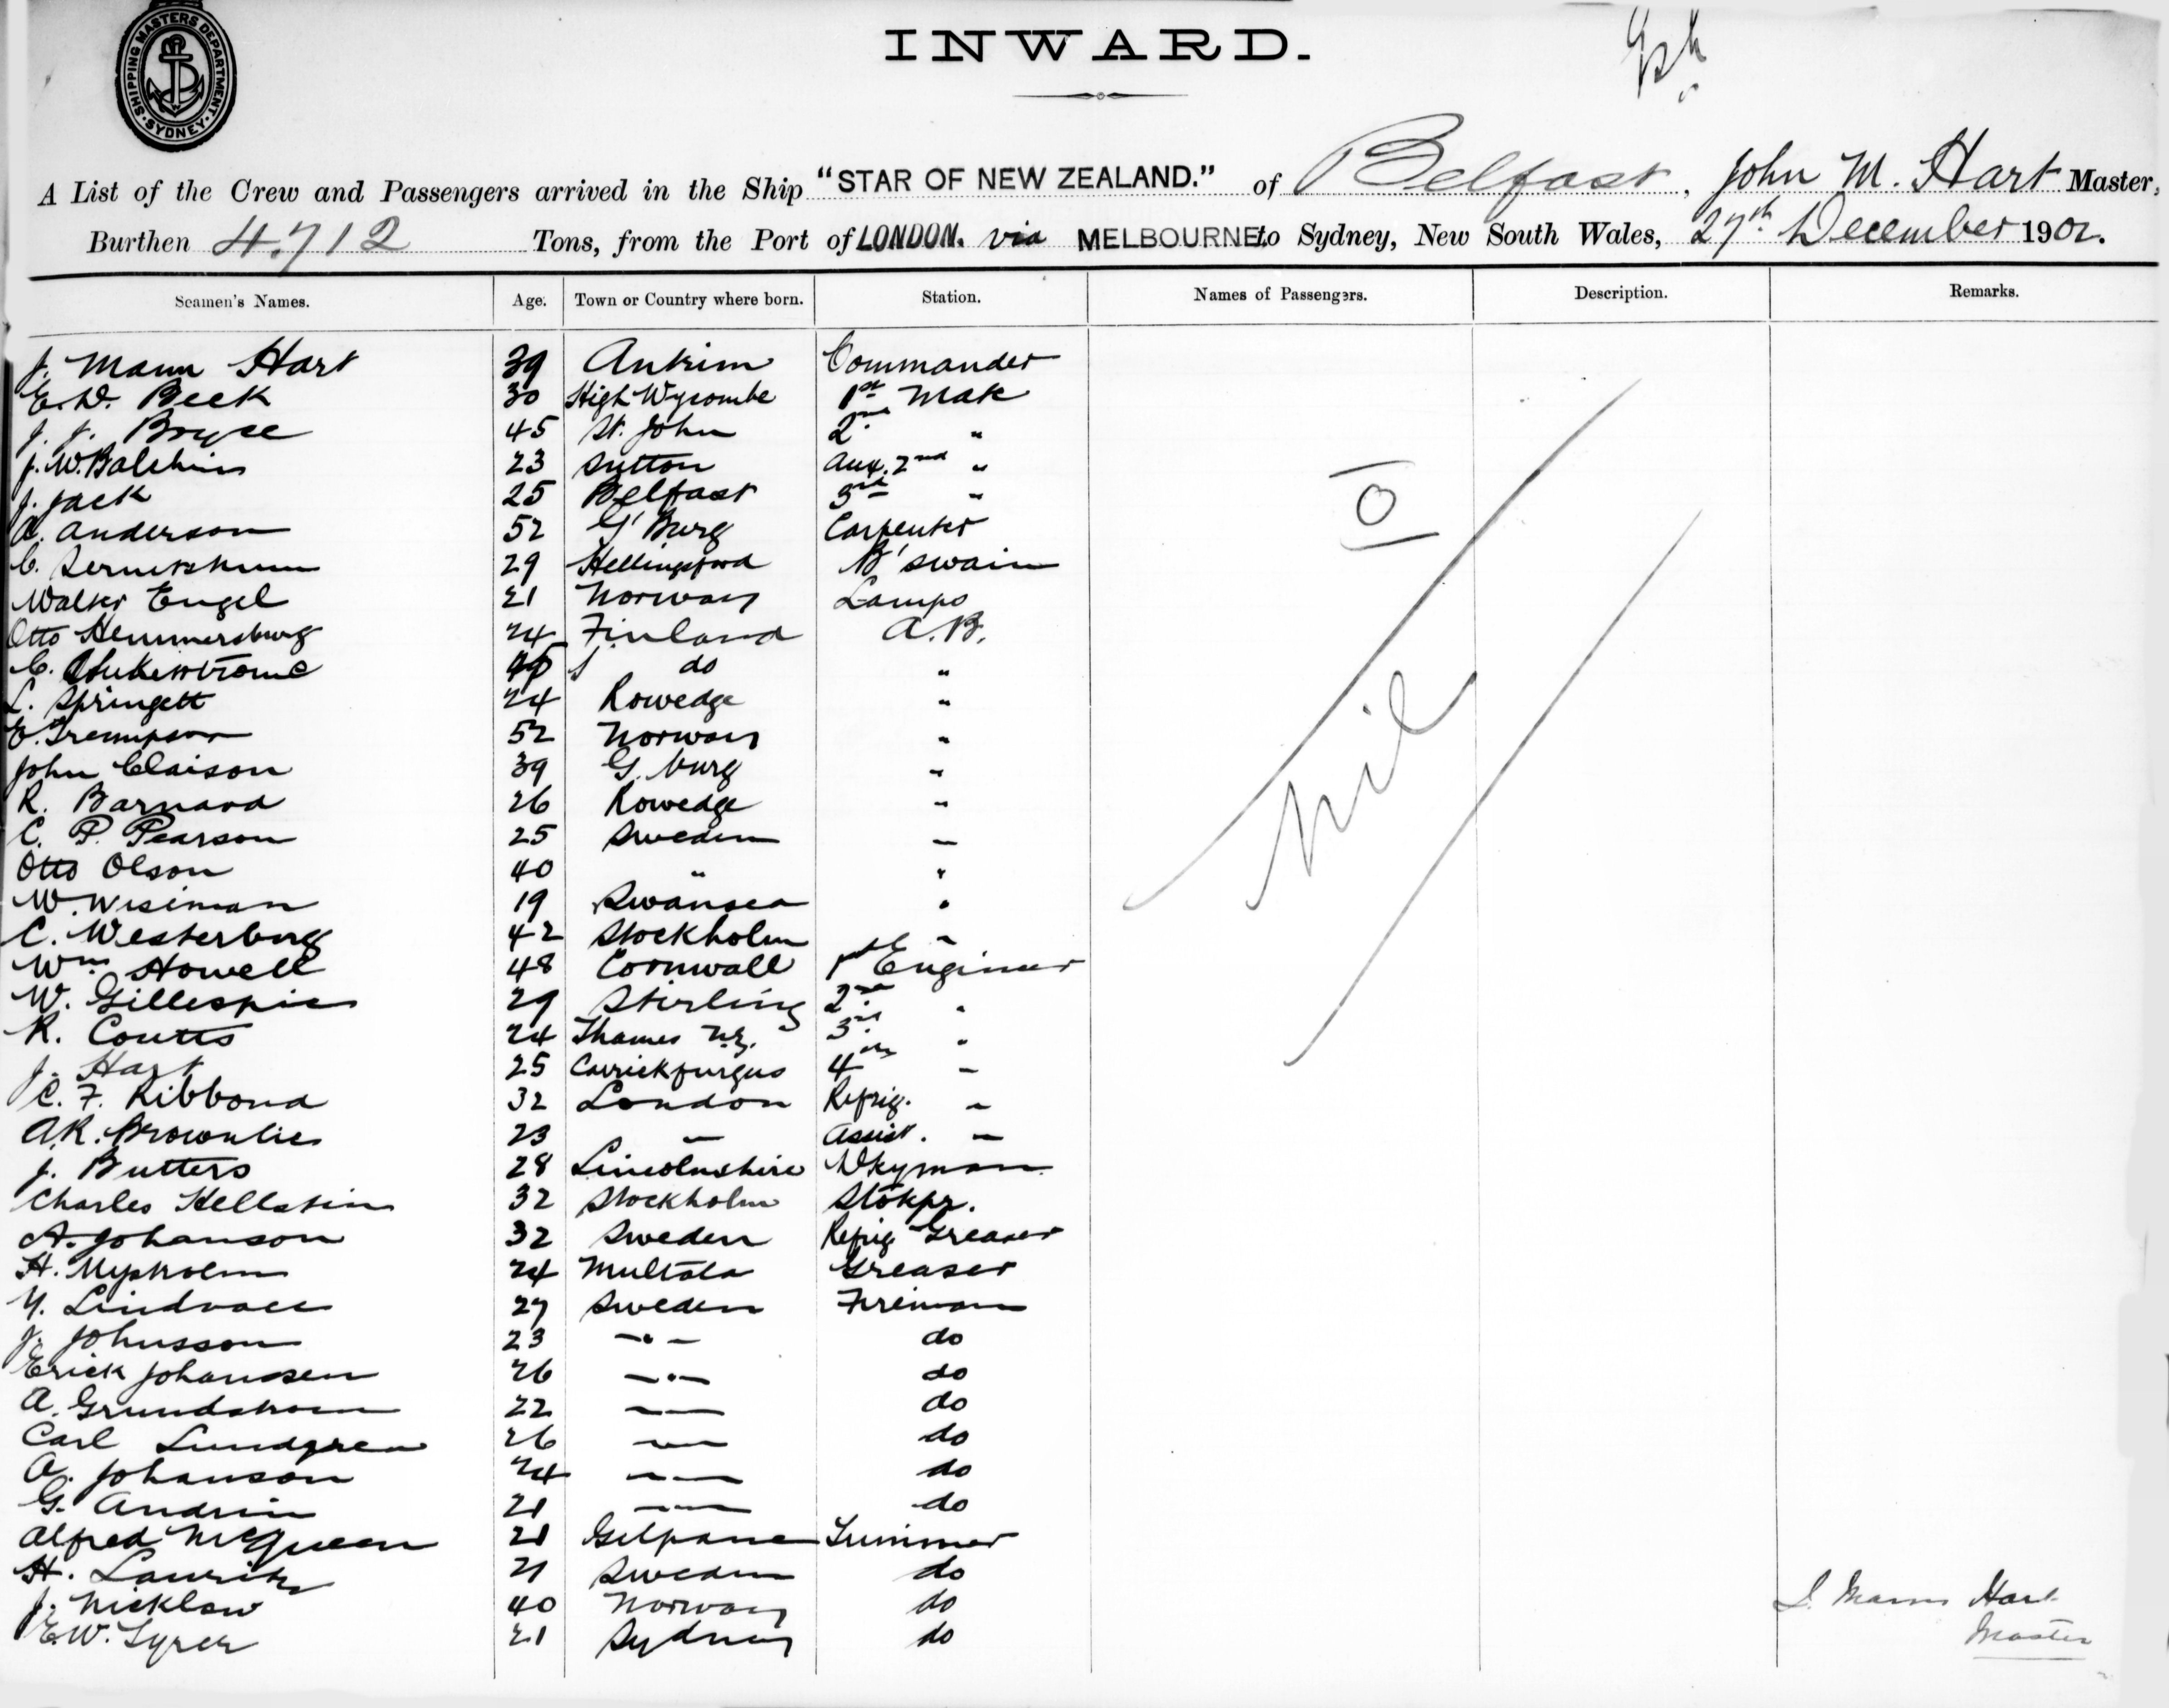 SHIPPING MASTERS DEPARTMENT. SYDNEY
INWARD.
A List of the Crew and Passengers arrived in the Ship "STAR OF NEW ZEALAND." of Belfast, John M. Hart Master,
Burthen 4712 Tons, from the Port of LONDON. via MELBOURNE to Sydney, New South Wales, 27th December 1902.
Seamen's Names. Age. Town or Country where born. Station. Names of Passengers. Description. Remarks.
J. Mann Hart 39 Antrim Commander
E.W. Beek 30 High Wycombe 1st Mate
J. J. Bryce 45 St. John 2nd "
J.W. 23 Sutton Aux. 2nd "
J. Jack 25 Belfast 3rd "
A. Anderson 52 G'Burg Carpenter
C. 29 Hellingsford B'swain
Walter Engel 21 Norway Lamps
Otto Hemmersburg 24 Finland A.B.
C. do "
L. Springett 24 Rowedge "
E. 52 Norway "
John Claison 39 G. burg "
R. Barnard 26 Rowedge "
C. P. Pearson 25 Sweden "
Otto Olson 40 " "
W. Wiseman 19 Swansea "
C. Westerburg 42 Stockholm "
Wm Howell 48 Cornwall 1st Engineer
W. Gillespie 29 Stirling 2nd "
R. Coutts 24 Thames N.Z. 3rd "
J. Hart 25 Carrickfurgus 4th "
C. F. Ribbond 32 London Refrig. "
A.R. Brownlie 23 " Assist. "
J. Butters 28 Lincolnshire Dkyman
Charles Hellstin 32 Stockholm Stokpr.
A. Johanson 32 Sweden Refrig Greaser
H. 24 Multala Greaser
Y. Lindvall 27 Sweden Fireman
J. Johnsson 23 " do
Erick Johansen 26 " do
A. Grundstrom 22 " do
Carl Lundgren 26 " do
A. Johanson 24 " do
G. Andrin 21 " do
Alfred McQueen 21 Trimmer
H. 21 Sweden do
J. Nicklow 40 Norway do
E.W. Tyrer 21 Sydney do
0
Nil
J. Mann Hart
Master